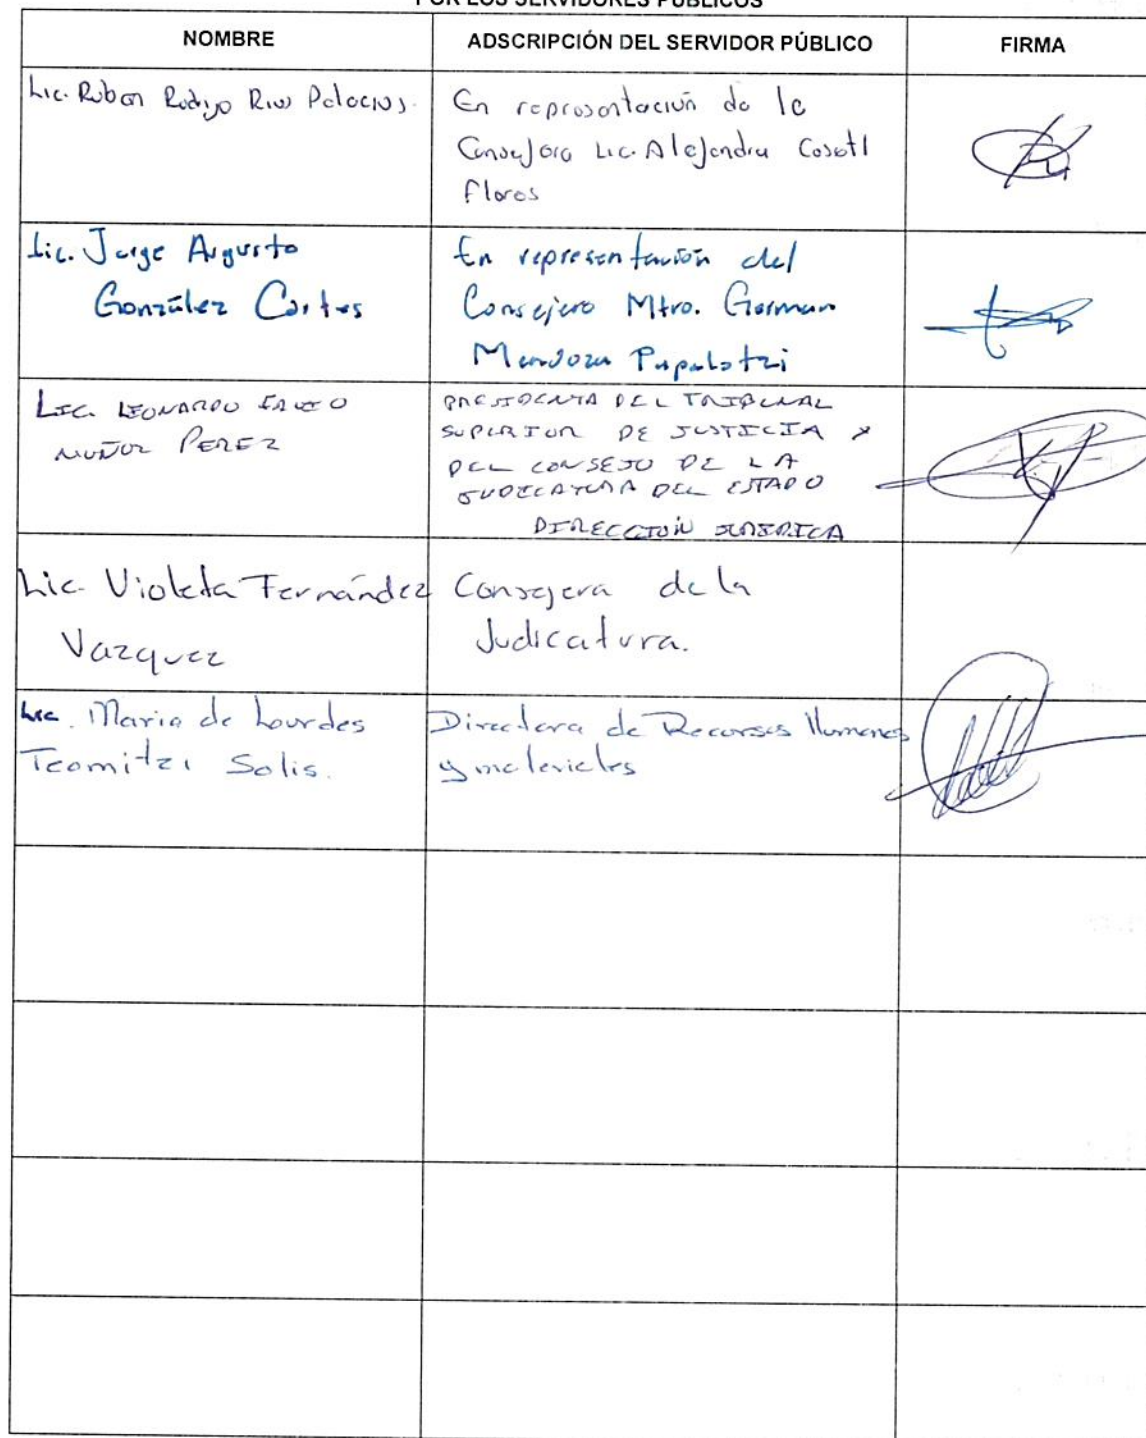 POR LOS SERVIDORES PÚBLICOS
NOMBRE
ADSCRIPCIÓN DEL SERVIDOR PÚBLICO
FIRMA
Lic. Ruben Rodrigo Rios Palacios.
En representación de la
Consejera Lic. Alejandra Cosetl
Flores
Lic. Jorge Augusto
González Cortes
En representación del
Consejero Mtro. German
Mendoza Papalotzi
LIC. LEONARDO
MUÑOZ PEREZ
PRESIDENTA DEL TRIBUNAL
SUPERIOR DE JUSTICIA Y
DEL CONSEJO DE LA
JUDICATURA DEL ESTADO
DIRECCIÓN JURIDICA
Lic. Violeta Fernández
Vazquez
Consejera de la
Judicatura.
Lic. Maria de Lourdes
Teomitzi Solis.
Directora de Recursos Humanos
y materiales